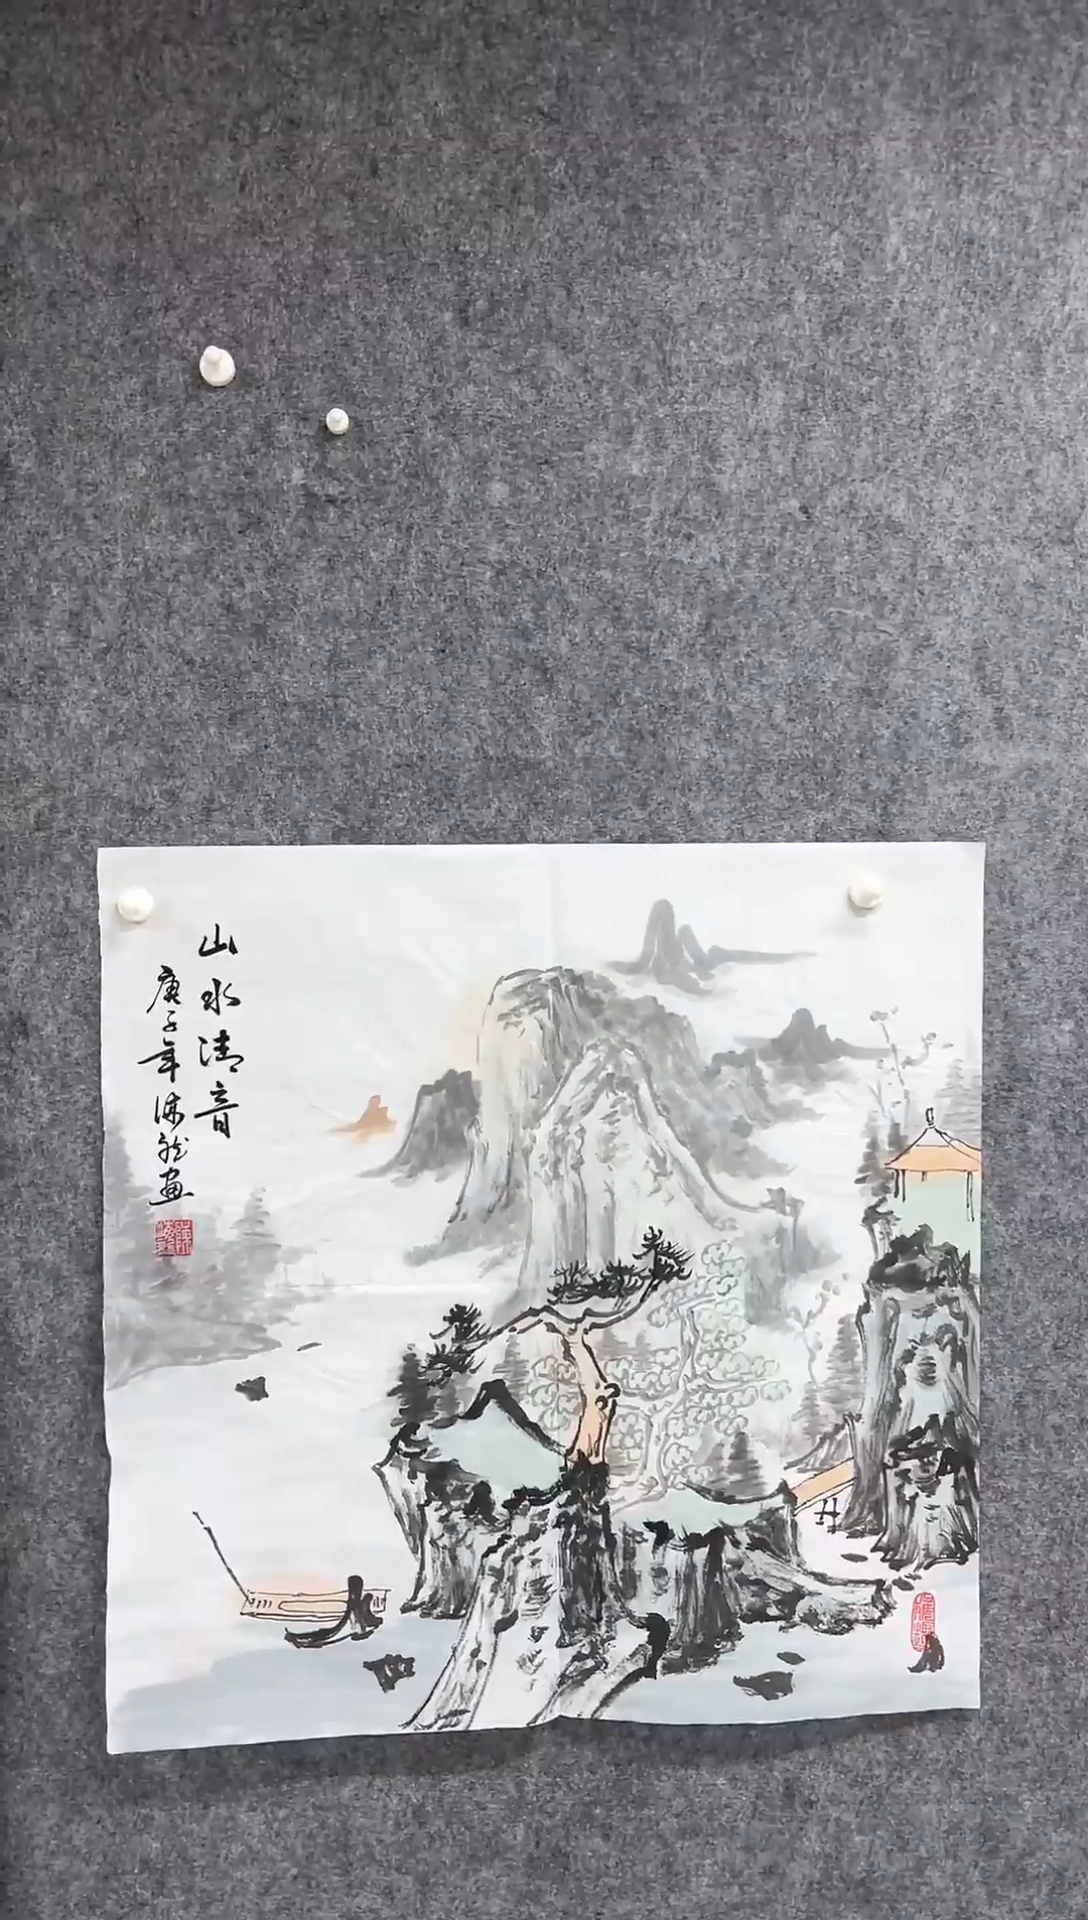 山水清音
庚子年
画